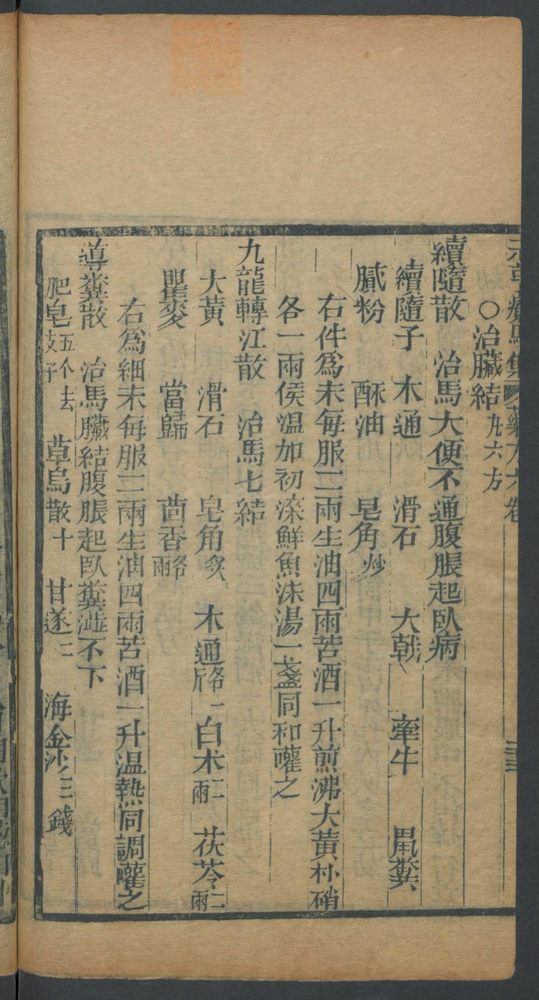 元亨療馬集 藥方六卷
○治臟結九六方
續隨散 治馬大便不通腹脹起臥病
續隨子 木通 滑石 大戟 牽牛 鼠糞
膩粉 酥油 皂角炒
右件爲末每服二兩生油四兩苦酒一升煎沸大黃朴硝
各一兩侯温加初滚鮮魚洙湯一盞同和嚾之
九龍轉江散 治馬七結
大黃 滑石 皂角 木通 白术二兩 茯苓二兩
瞿麥 當歸 茴香
右爲細末每服二兩生油四兩苦酒一升温熱同調嚾之
導糞散 治馬臟結腹脹起臥糞澁不下
肥皂五个去 草烏散十 甘遂二 海金沙三錢